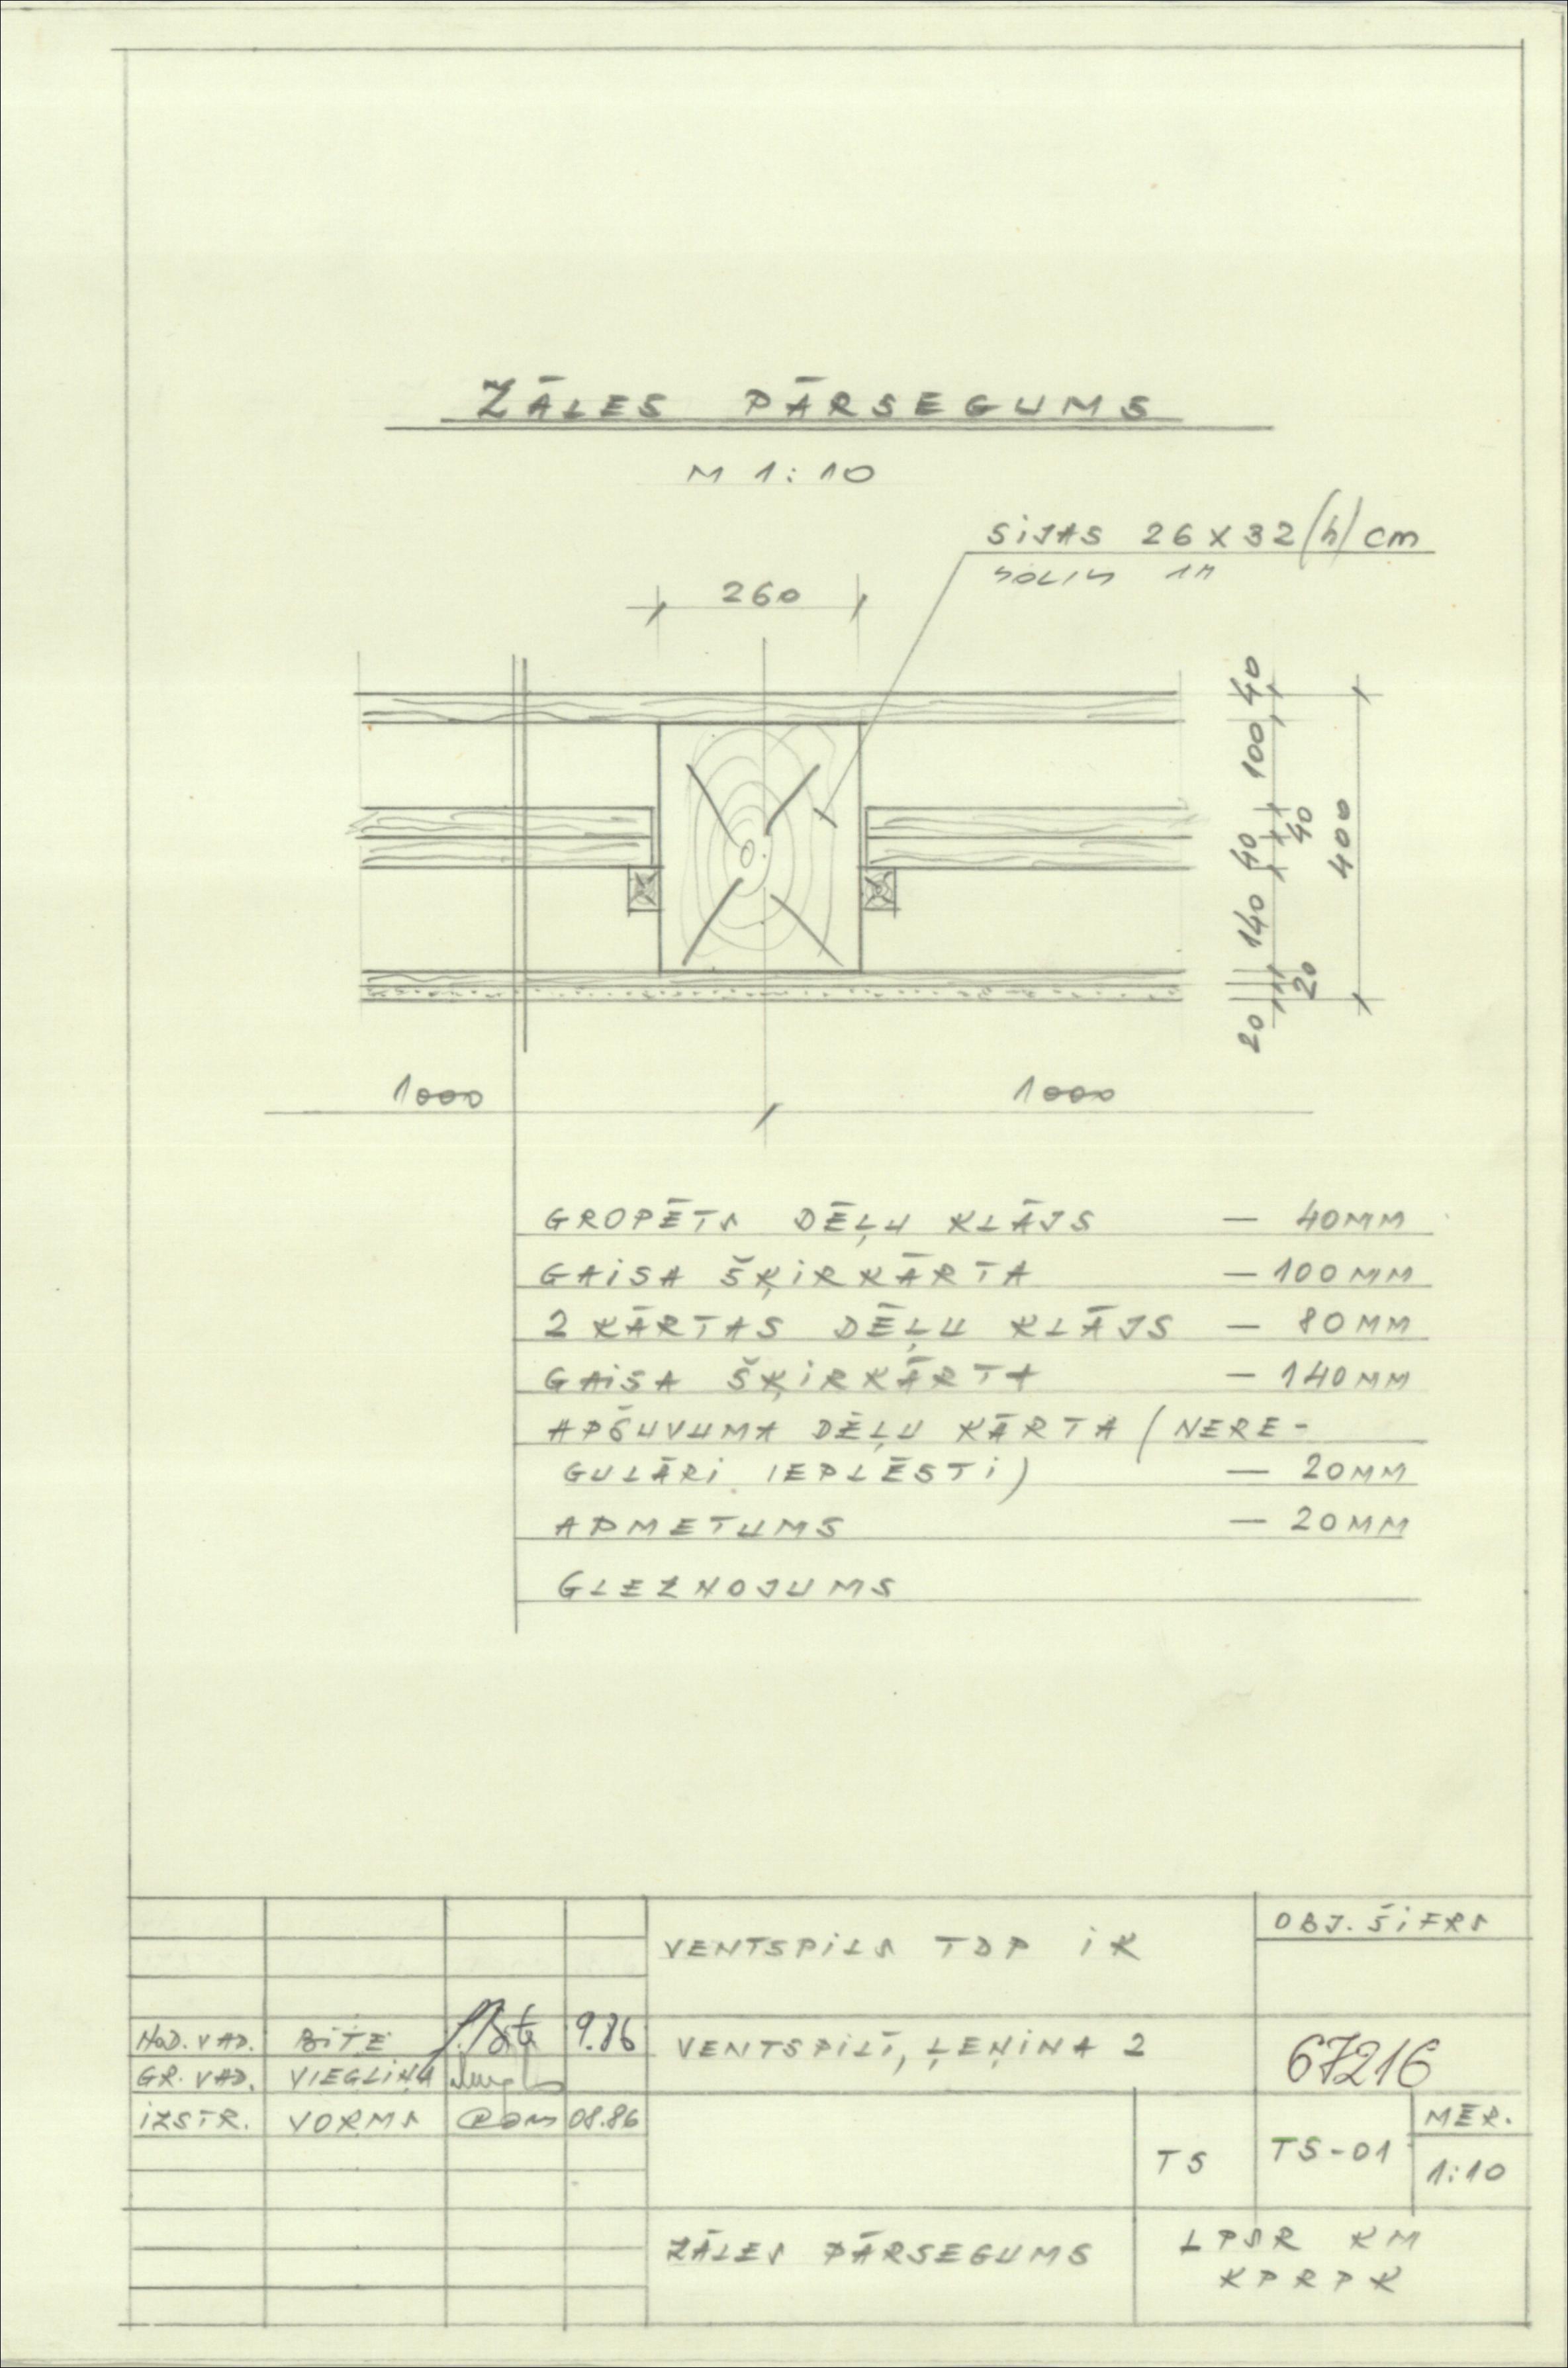 ZĀLES PĀRSEGUMS
M 1:10
SIJAS 26 X 32 (h) cm
SOLIS 1M
260
40
100
40
40
140
20
20
400
1000
1000
GROPĒTS DĒĻU KLĀJS — 40MM
GAISA ŠĶIRKĀRTA — 100MM
2 KĀRTAS DĒĻU KLĀJS — 80MM
GAISA ŠĶIRKĀRTA — 140MM
APŠUVUMA DĒĻU KĀRTA (NERE-
GULĀRI IEPLĒSTI) — 20MM
APMETUMS — 20MM
GLEZNOJUMS
VENTSPILS TDP IK
OBJ. ŠIFRS
NOD. VAD. BITE 9.86
VENTSPILĪ, ĻEŅINA 2
67216
GR. VAD. VIEGLIŅA
IZSTR. VORMS 08.86
TS
TS-01
MĒR.
1:10
ZĀLES PĀRSEGUMS
LPSR KM
KPRPK